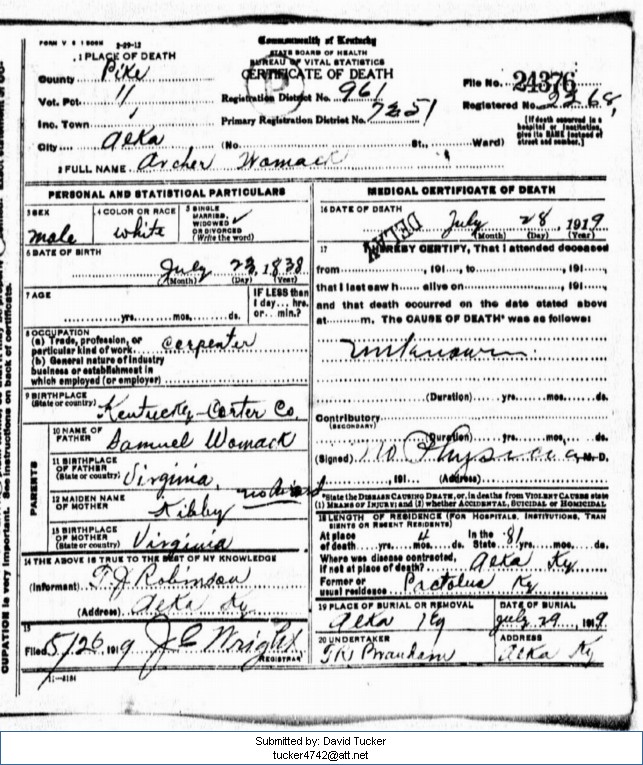 FORM V S 1 3-29-12
Commonwealth of Kentucky
STATE BOARD OF HEALTH
BUREAU OF VITAL STATISTICS
CERTIFICATE OF DEATH
1 PLACE OF DEATH
County Pike
Vot. Pct. 11
Inc. Town
City Aeka
Registration District No. 961
Primary Registration District No. 7251
(No. St., Ward)
File No. 24376
Registered No. 2268
[If death occurred in a hospital or institution, give its NAME instead of street and number.]
2 FULL NAME Archer Womack
PERSONAL AND STATISTICAL PARTICULARS
3 SEX male
4 COLOR OR RACE white
5 SINGLE MARRIED, WIDOWED ✓ OR DIVORCED (Write the word)
6 DATE OF BIRTH
July 23, 1838
(Month) (Day) (Year)
7 AGE
yrs. mos. ds.
IF LESS than 1 day... hrs. or... min.?
8 OCCUPATION
(a) Trade, profession, or particular kind of work Carpenter
(b) General nature of industry
business or establishment in
which employed (or employer)
9 BIRTHPLACE
(State or country) Kentucky-Carter Co.
PARENTS
10 NAME OF FATHER Samuel Womack
11 BIRTHPLACE OF FATHER (State or country) Virginia
12 MAIDEN NAME OF MOTHER Kibby
13 BIRTHPLACE OF MOTHER (State or country) Virginia
14 THE ABOVE IS TRUE TO THE BEST OF MY KNOWLEDGE
(Informant) T. J. Robinson
(Address) Aeka Ky
15
Filed 5/26, 1919 J C Wright
REGISTRAR
11-3184
MEDICAL CERTIFICATE OF DEATH
16 DATE OF DEATH
July 28, 1919
(Month) (Day) (Year)
DELAY
17 I HEREBY CERTIFY, That I attended deceased
from , 191 , to , 191 ,
that I last saw h alive on , 191 ,
and that death occurred on the date stated above
at m. The CAUSE OF DEATH* was as follows:
Unknown.
(Duration) yrs. mos. ds.
Contributory
(SECONDARY)
(Duration) yrs. mos. ds.
(Signed) no Physician M.D.
, 191 (Address)
*State the DISEASE CAUSING DEATH, or, in deaths from VIOLENT CAUSES state
(1) MEANS OF INJURY; and (2) whether ACCIDENTAL, SUICIDAL or HOMICIDAL
18 LENGTH OF RESIDENCE (FOR HOSPITALS, INSTITUTIONS, TRANSIENTS OR RECENT RESIDENTS)
At place of death yrs. 4 mos. ds. In the State 81 yrs. mos. ds.
Where was disease contracted,
if not at place of death? Aeka Ky
Former or
usual residence Pactolus Ky
19 PLACE OF BURIAL OR REMOVAL
Aeka Ky
DATE OF BURIAL
July 29, 1919
20 UNDERTAKER
ADDRESS
Aeka Ky
CUPATION is very important. See instructions on back of certificate.
Submitted by: David Tucker
tucker4742@att.net